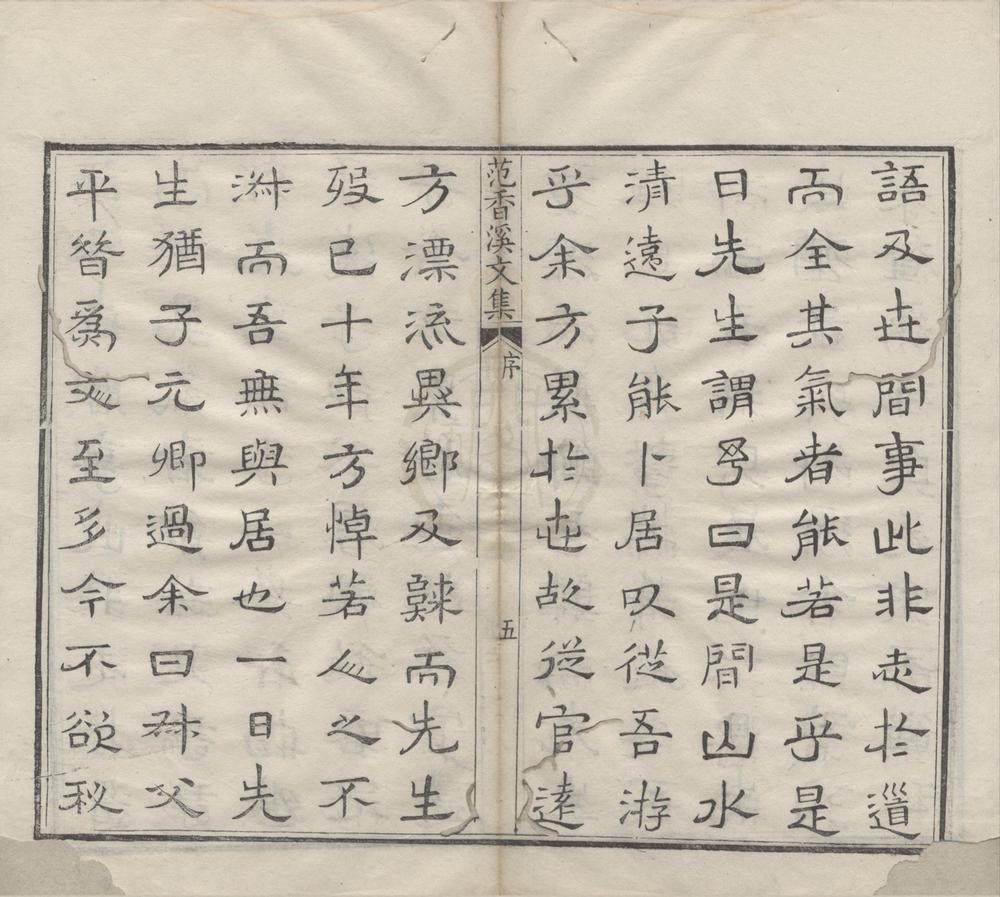 語及世間事此非志於道
而全其氣者能若是乎是
日先生謂予曰是間山水
清遠子能卜居以從吾游
乎余方累於世故從官遠
范香溪文集 序 五
方漂流異鄉及歸而先生
歿已十年方悼若人之不
淑而吾無與居也一日先
生猶子元卿過余曰叔父
平昔爲文至多今不欲秘